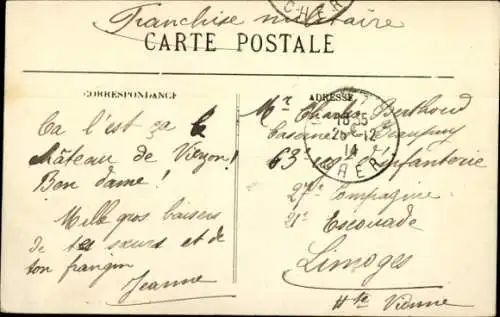 Franchise militaire
CHER
CARTE POSTALE
CORRESPONDANCE
ADRESSE
Ca l'est ça le
château de Vierzon!
Ben dame!
Mille gros baisers
de tes sœurs et de
ton frangin
Jeanne
Mr Charles Berthoud
Caserne Beaupuy
63e d'infanterie
27e Compagnie
21e Escouade
Limoges
Hte Vienne
18 35
26 -12
14
CHER